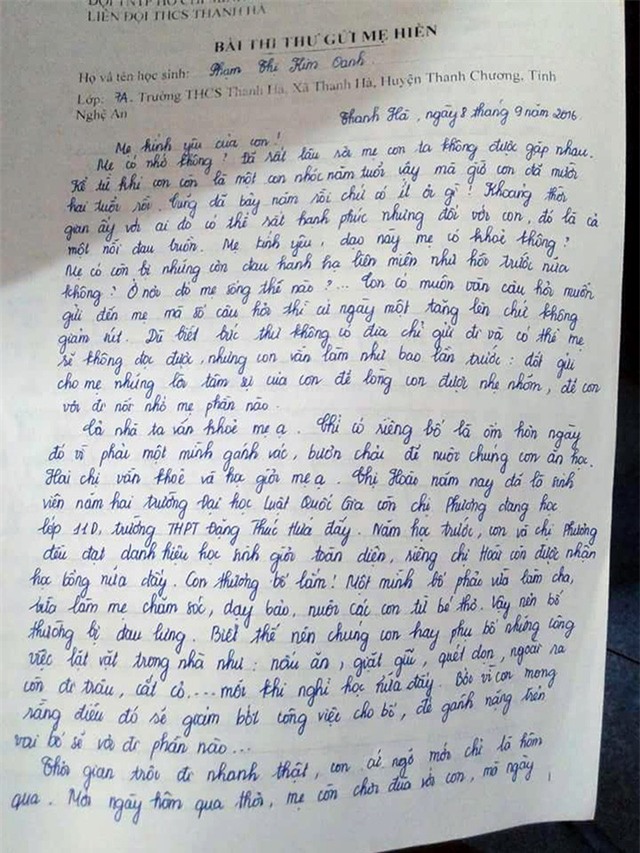 ĐỘI TNTP HỒ CHÍ MINH
LIÊN ĐỘI THCS THANH HÀ
BÀI THI THƯ GỬI MẸ HIỀN
Họ và tên học sinh: Phạm Thị Kim Oanh
Lớp: 7A. Trường THCS Thanh Hà, Xã Thanh Hà, Huyện Thanh Chương, Tỉnh
Nghệ An
Thanh Hà, ngày 8 tháng 9 năm 2016.
Mẹ kính yêu của con!
Mẹ có nhớ không? Đã rất lâu rồi mẹ con ta không được gặp nhau.
Kể từ khi con còn là một con nhóc năm tuổi vậy mà giờ con đã mười
hai tuổi rồi. Cũng đã bảy năm rồi chứ có ít ỏi gì! Khoảng thời
gian ấy với ai đó có thể rất hạnh phúc nhưng đối với con, đó là cả
một nỗi đau buồn. Mẹ kính yêu, dạo này mẹ có khoẻ không?
Mẹ có còn bị những cơn đau hành hạ liên miên như hồi trước nữa
không? Ở nơi đó mẹ sống thế nào?... Con có muôn vàn câu hỏi muốn
gửi đến mẹ mà số câu hỏi thì cứ ngày một tăng lên chứ không
giảm rút. Dù biết bức thư không có địa chỉ gửi đi và có thể mẹ
sẽ không đọc được, nhưng con vẫn làm như bao lần trước: đốt gửi
cho mẹ những lời tâm sự của con để lòng con được nhẹ nhõm, để con
vơi đi nỗi nhớ mẹ phần nào.
Cả nhà ta vẫn khoẻ mẹ ạ. Chỉ có riêng bố là ốm hơn ngày
đó vì phải một mình gánh vác, bươn chải để nuôi chúng con ăn học.
Hai chị vẫn khoẻ và học giỏi mẹ ạ. Chị Hoài năm nay đã là sinh
viên năm hai trường Đại học Luật Quốc Gia còn chị Phương đang học
lớp 11D, trường THPT Đặng Thúc Hứa đấy. Năm học trước, con và chị Phương
đều đạt danh hiệu học sinh giỏi toàn diện, riêng chị Hoài còn được nhận
học bổng nữa đấy. Con thương bố lắm! Một mình bố phải vừa làm cha,
vừa làm mẹ chăm sóc, dạy bảo, nuôi các con từ bé thơ. Vậy nên bố
thường bị đau lưng. Biết thế nên chúng con hay phụ bố những công
việc lặt vặt trong nhà như: nấu ăn, giặt giũ, quét dọn, ngoài ra
còn đi trâu, cắt cỏ,... mỗi khi nghỉ học nữa đấy. Bởi vì con mong
rằng điều đó sẽ giảm bớt công việc cho bố, để gánh nặng trên
vai bố sẽ vơi đi phần nào...
Thời gian trôi đi nhanh thật, con cứ ngỡ mới chỉ là hôm
qua. Mới ngày hôm qua thôi, mẹ còn chơi đùa với con, mà ngày